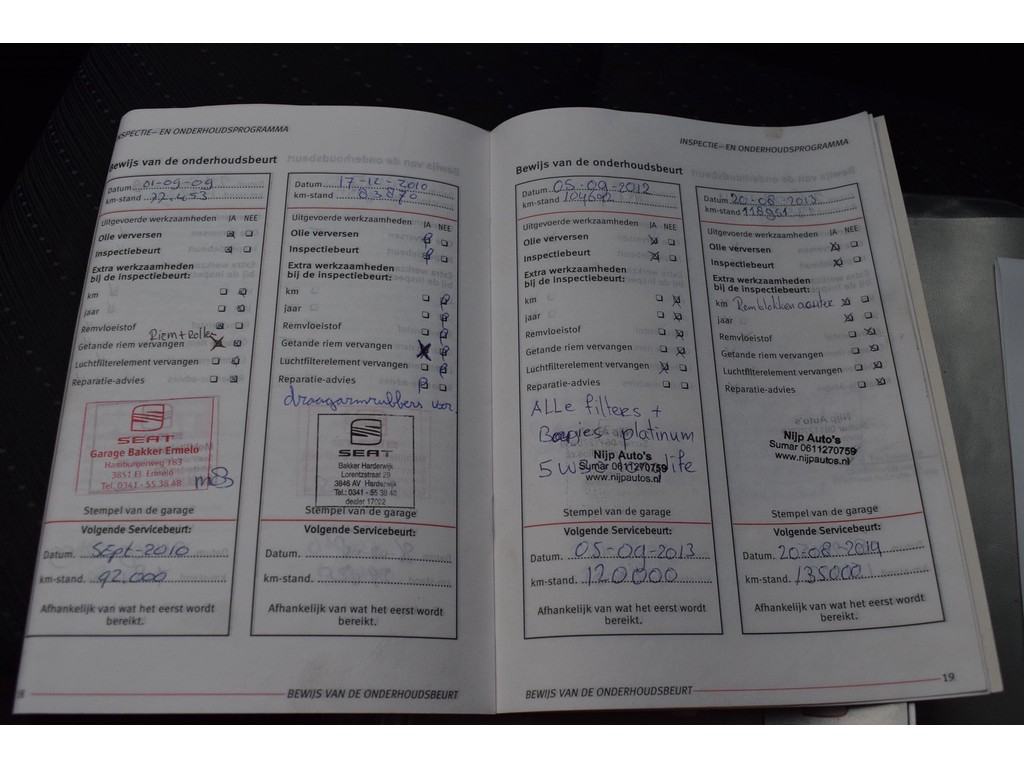 INSPECTIE- EN ONDERHOUDSPROGRAMMA
Bewijs van de onderhoudsbeurt
Datum 01-09-09
km-stand 77.453
Uitgevoerde werkzaamheden JA NEE
Olie verversen
Inspectiebeurt
Extra werkzaamheden
bij de inspectiebeurt:
km
jaar
Remvloeistof
Riem + Rollen
Getande riem vervangen
Luchtfilterelement vervangen
Reparatie-advies
SEAT
Garage Bakker Ermelo
Hamburgerweg 183
3851 EL Ermelo
Tel. 0341 - 55 38 48
Stempel van de garage
Volgende Servicebeurt:
Datum. Sept-2010
km-stand. 92.000
Afhankelijk van wat het eerst wordt
bereikt.
Datum 17-12-2010
km-stand 83.870
Uitgevoerde werkzaamheden JA NEE
Olie verversen
Inspectiebeurt
Extra werkzaamheden
bij de inspectiebeurt:
km
jaar
Remvloeistof
Getande riem vervangen
Luchtfilterelement vervangen
Reparatie-advies
draagarmrubbers voor
SEAT
Bakker Harderwijk
Lorentzstraat 29
3846 AV Harderwijk
Tel.: 0341 - 55 38 48
dealer 17022
Stempel van de garage
Volgende Servicebeurt:
Datum.
km-stand.
Afhankelijk van wat het eerst wordt
bereikt.
BEWIJS VAN DE ONDERHOUDSBEURT
INSPECTIE- EN ONDERHOUDSPROGRAMMA
Bewijs van de onderhoudsbeurt
Datum 05-09-2012
km-stand 104692
Uitgevoerde werkzaamheden JA NEE
Olie verversen
Inspectiebeurt
Extra werkzaamheden
bij de inspectiebeurt:
km
jaar
Remvloeistof
Getande riem vervangen
Luchtfilterelement vervangen
Reparatie-advies
ALLe filters +
Bougies platinum
Nijp Auto's
Sumar 0611270759
www.nijpautos.nl
Stempel van de garage
Volgende Servicebeurt:
Datum. 05-09-2013
km-stand. 120000
Afhankelijk van wat het eerst wordt
bereikt.
Datum 20-08-2013
km-stand 118951
Uitgevoerde werkzaamheden JA NEE
Olie verversen
Inspectiebeurt
Extra werkzaamheden
bij de inspectiebeurt:
km Remblokken achter
jaar
Remvloeistof
Getande riem vervangen
Luchtfilterelement vervangen
Reparatie-advies
Nijp Auto's
Sumar 0611270759
www.nijpautos.nl
Stempel van de garage
Volgende Servicebeurt:
Datum. 20-08-2014
km-stand. 135000
Afhankelijk van wat het eerst wordt
bereikt.
BEWIJS VAN DE ONDERHOUDSBEURT
19